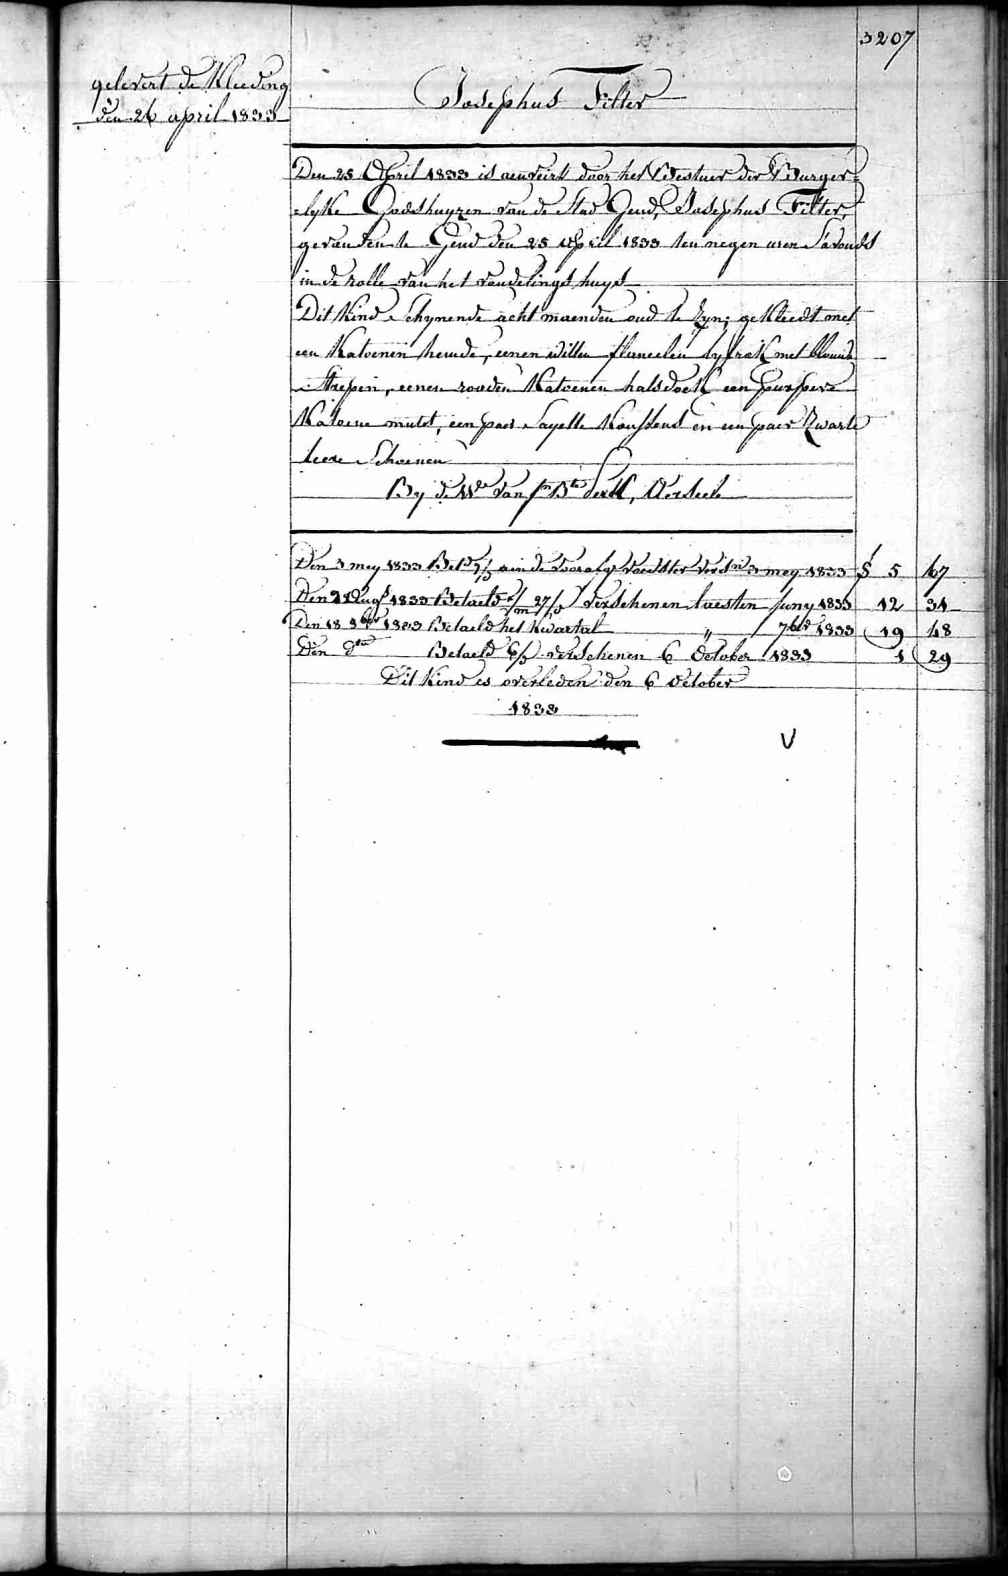 3207
gelevert de Kleeding
den 26 april 1833
Josephus Filter
Den 25 April 1833 is aenveirt door het Bestuer der Burger=
lyke Godshuyzen van de Stad Gend, Josephus Filter,
gevonden te Gend den 25 April 1833 ten negen uren s'avonds
in de rolle van het vondelingshuys
Dit Kind schynende acht maenden oud te zyn; gekleedt met
een Katoenen hemde, eenen witten flanellen lyfrok met blauwe
Strepen, eenen rooden Katoenen halsdoek een purpere
Katoene muts, een paer Sayette Kousens en een paer Zwarte
leere Schoenen
By de Wde van Jn Bte Verseele
Den 3 mey 1833 Bet aen de voorsz voedster versn 3 mey 1833 5 67
Den 21 Augs 1833 Betaeld verschenen laesten Juny 1833 12 31
Den 18 8ber 1833 Betaeld het Kwartael " 7ber 1833 19 48
Den dto Betaeld verschenen 6 October 1833 1 29
Dit Kind is overleden den 6 October
1833
V